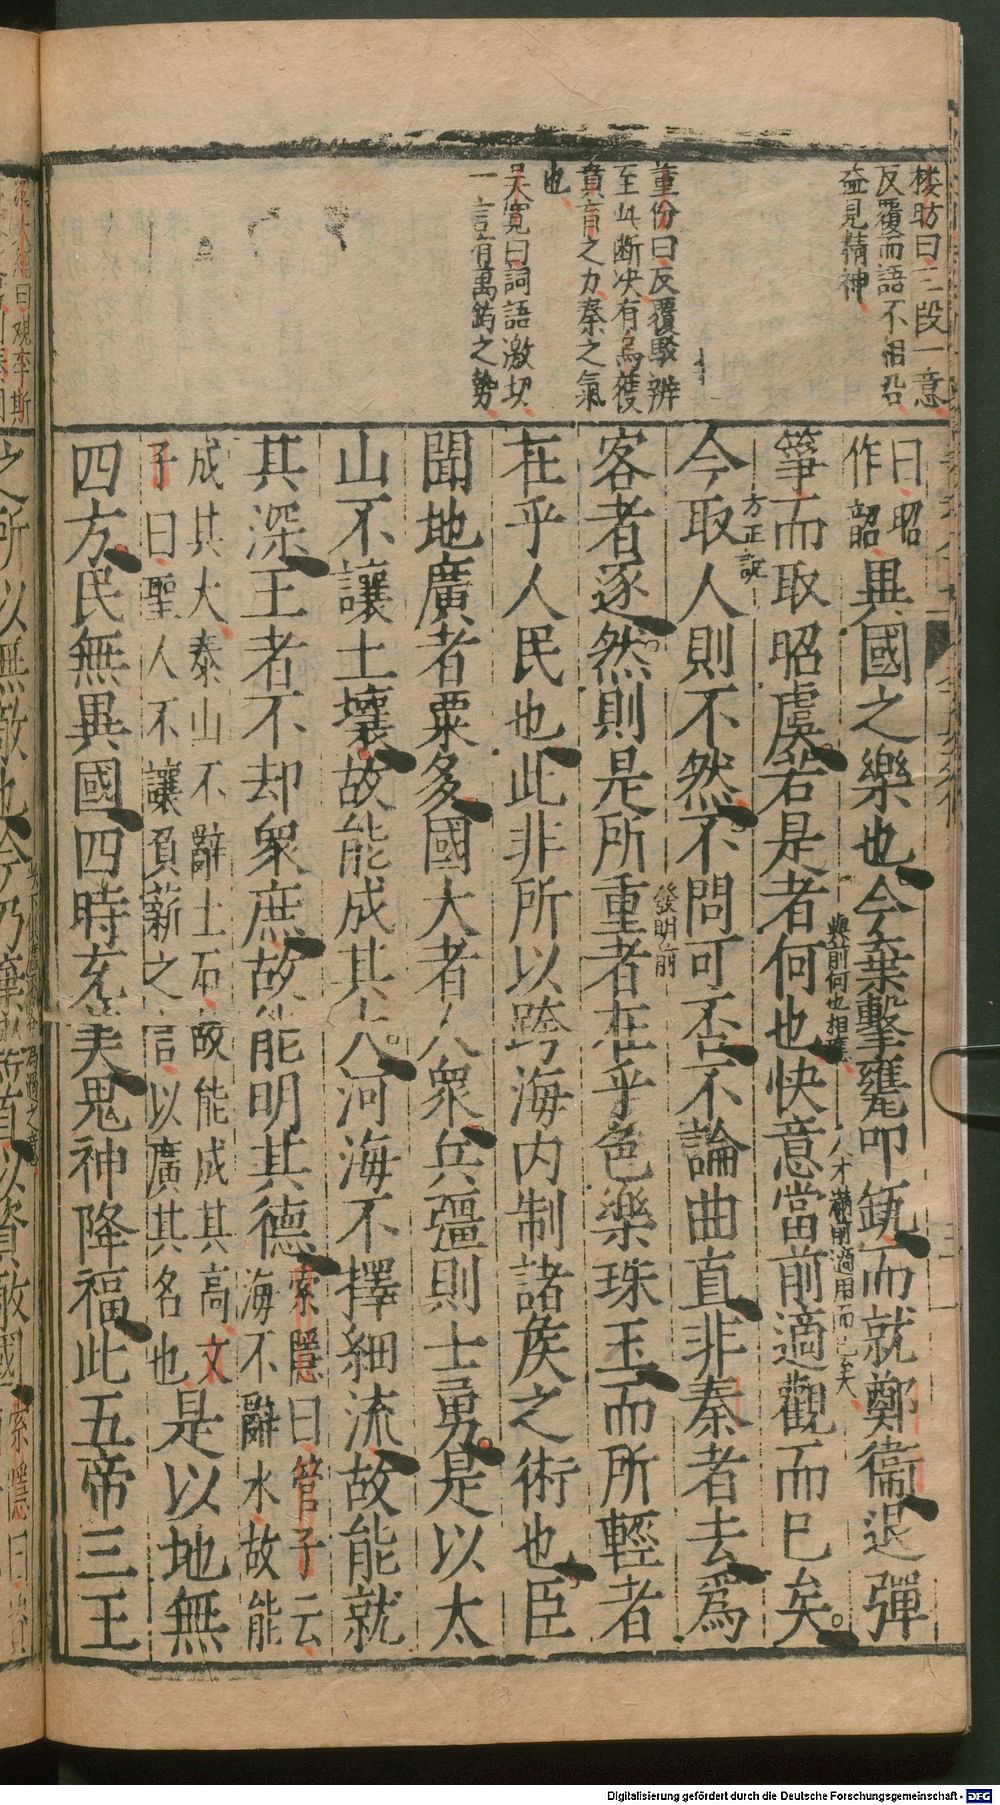 樓昉曰三段一意
反覆而語不相沿
益見精神
董份曰反覆駁辨
至此斷决有烏獲
賁育之力秦之氣
也
吳寬曰詞語激切
一言有萬鈞之勢
曰昭
作韶
異國之樂也今棄擊甕叩缻而就鄭衞退彈
與前何也相應
人才
適用而已矣
箏而取昭虞若是者何也快意當前適觀而已矣
方正說
今取人則不然不問可否不論曲直非秦者去爲
發明前
客者逐然則是所重者在乎色樂珠玉而所輕者
在乎人民也此非所以跨海内制諸侯之術也臣
聞地廣者粟多國大者人衆兵彊則士勇是以太
山不讓土壤故能成其大河海不擇細流故能就
其深王者不却衆庶故能明其德
索隱曰管子云
海不辭水故能
成其大泰山不辭土石故能成其高文
子曰聖人不讓負薪之言以廣其名也
是以地無
四方民無異國四時充美鬼神降福此五帝三王
曰觀李斯
之所以無敵也今乃棄黔首以資敵國
索隱曰資
Digitalisierung gefördert durch die Deutsche Forschungsgemeinschaft - DFG